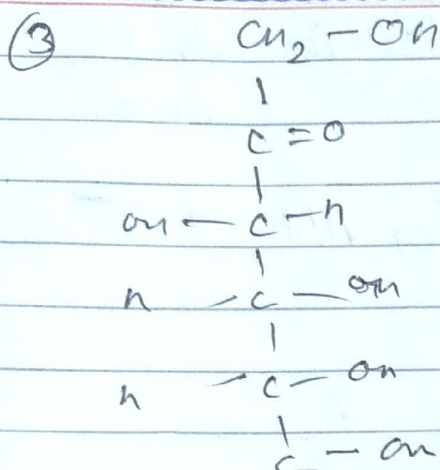 ③ CH2 - OH
|
C = O
|
OH - C - H
|
H - C - OH
|
H - C - OH
|
C - OH